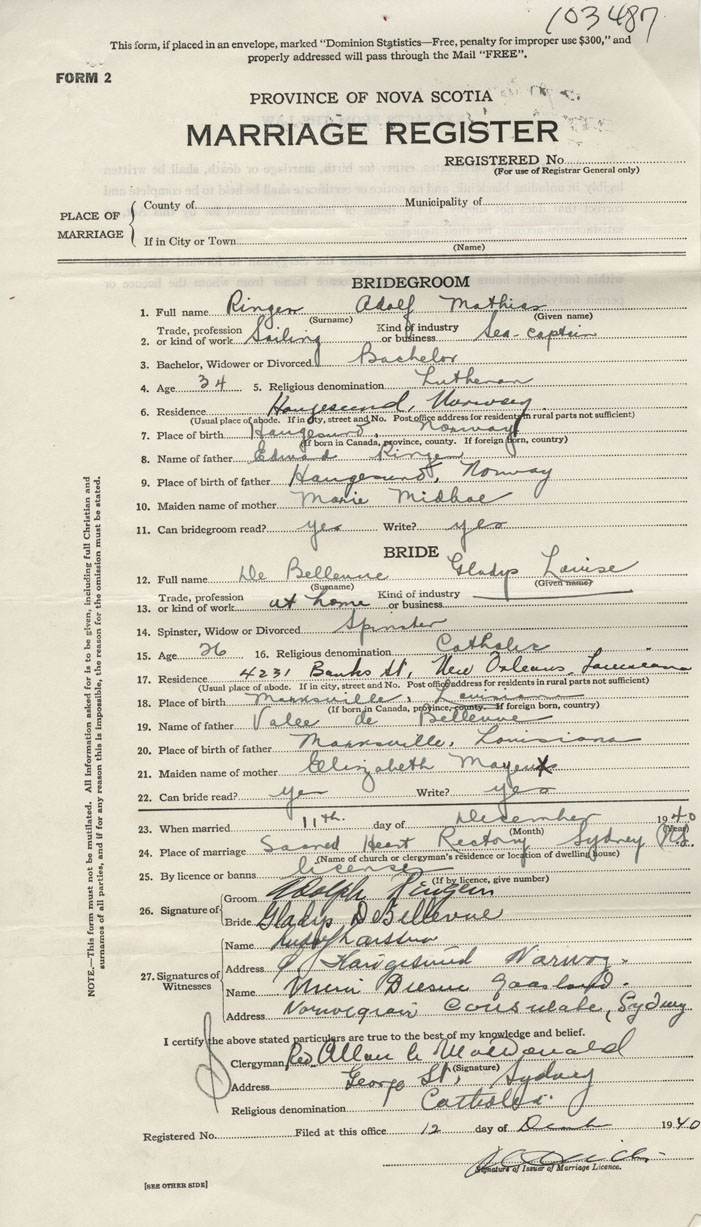 103487
This form, if placed in an envelope, marked "Dominion Statistics—Free, penalty for improper use $300," and
properly addressed will pass through the Mail "FREE".
FORM 2
PROVINCE OF NOVA SCOTIA
MARRIAGE REGISTER
REGISTERED No.
(For use of Registrar General only)
PLACE OF MARRIAGE
County of Municipality of
If in City or Town
(Name)
BRIDEGROOM
1. Full name Ringen Adolf Mathias
(Surname) (Given name)
2. Trade, profession or kind of work Sailing Kind of industry or business Sea-captain
3. Bachelor, Widower or Divorced Bachelor
4. Age 34 5. Religious denomination Lutheran
6. Residence Haugesund, Norway
(Usual place of abode. If in city, street and No. Post office address for residents in rural parts not sufficient)
7. Place of birth Haugesund, Norway
(If born in Canada, province, county. If foreign born, country)
8. Name of father Edward Ringen
9. Place of birth of father Haugesund, Norway
10. Maiden name of mother Marie Midboe
11. Can bridegroom read? yes Write? yes
BRIDE
12. Full name De Bellevue Gladys Louise
(Surname) (Given name)
13. Trade, profession or kind of work at home Kind of industry or business
14. Spinster, Widow or Divorced Spinster
15. Age 26 16. Religious denomination Catholic
17. Residence 4231 Banks St, New Orleans, Louisiana
(Usual place of abode. If in city, street and No. Post office address for residents in rural parts not sufficient)
18. Place of birth Marksville, Louisiana
(If born in Canada, province, county. If foreign born, country)
19. Name of father Valee de Bellevue
20. Place of birth of father Marksville, Louisiana
21. Maiden name of mother Elizabeth Mayeux
22. Can bride read? yes Write? yes
23. When married 11th. day of December 1940
(Month) (Year)
24. Place of marriage Sacred Heart Rectory Sydney N.S.
(Name of church or clergyman's residence or location of dwelling house)
25. By licence or banns license
(If by licence, give number)
26. Signature of
Groom Adolph Ringen
Bride Gladys DeBellevue
27. Signatures of Witnesses
Name
Address Haugesund Norway.
Name
Address Norwegian Consulate, Sydney
I certify the above stated particulars are true to the best of my knowledge and belief.
Clergyman Rev. Allan MacDonald
(Signature)
Address George St, Sydney
Religious denomination Catholic.
Registered No. Filed at this office 12 day of 1940
Signature of Issuer of Marriage Licence.
[SEE OTHER SIDE]
NOTE.—This form must not be mutilated. All information asked for is to be given, including full Christian and
surnames of all parties, and if for any reason this is impossible, the reason for the omission must be stated.